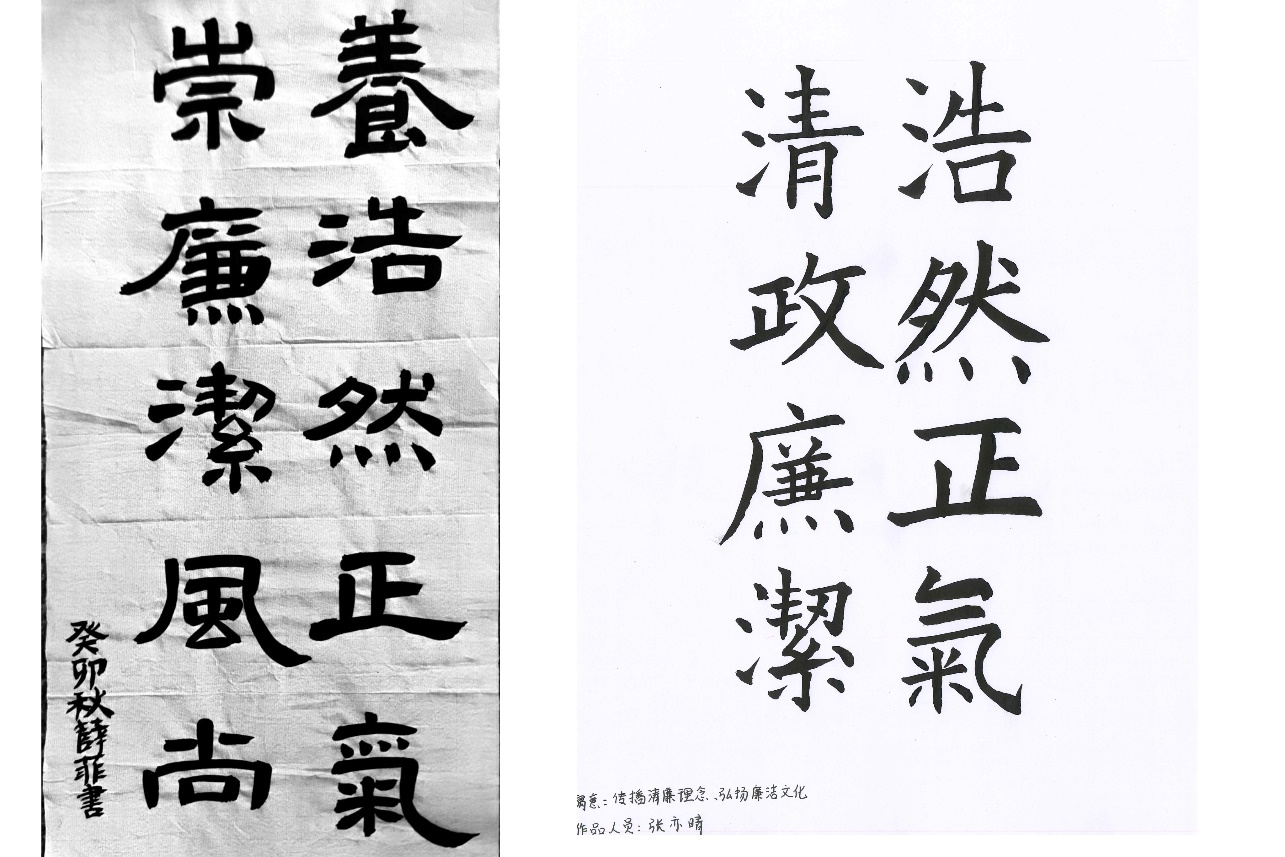 養浩然正氣
崇廉潔風尚
癸卯秋薛菲書
浩然正氣
清政廉潔
寓意:传播清廉理念、弘扬廉洁文化
作品人员:张亦晴